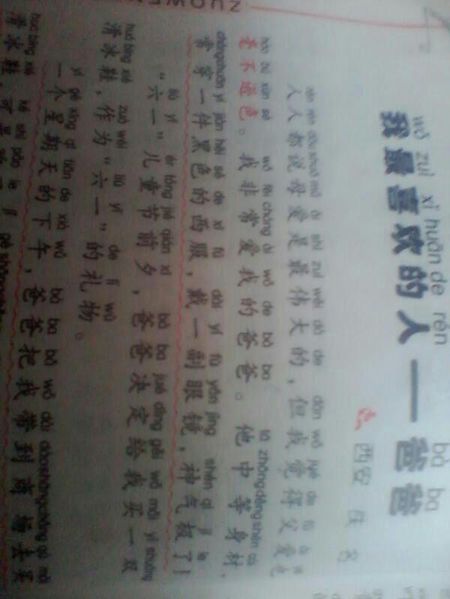 ZUOWEN
wǒ zuì xǐ huān de rén bà ba
我最喜欢的人——爸爸
西安 佚名
rén rén dōu shuō mǔ ài shì zuì wěi dà de dàn wǒ jué de fù ài yě
人人都说母爱是最伟大的，但我觉得父爱也
háo bù xùn sè wǒ fēi cháng ài wǒ de bà ba tā zhōng děng shēn cái
毫不逊色。我非常爱我的爸爸。他中等身材，
cháng chuān yí jiàn hēi sè de xī fú dài yí fù yǎn jìng shén qì jí le
常穿一件黑色的西服，戴一副眼镜，神气极了！
liù yī ér tóng jié qián xī bà ba jué dìng gěi wǒ mǎi yì shuāng
“六一”儿童节前夕，爸爸决定给我买一双
huá bīng xié zuò wéi liù yī de lǐ wù
滑冰鞋，作为“六一”的礼物。
yí gè xīng qī tiān de xià wǔ bà ba bǎ wǒ dài dào shāng chǎng qù mǎi
一个星期天的下午，爸爸把我带到商场去买
huá bīng xié kě shì pǎo le
滑冰鞋，可是